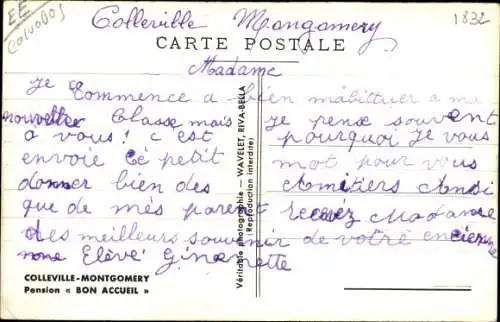 EE
Calvados
Colleville Mongomery
1832
CARTE POSTALE
Madame
Je Commence a bien mabittuer a ma
nouvelle Classe mais je pense souvent
a vous! c'est pourquoi je vous
envoie Cé petit mot pour vous
donner bien des Amitiers Ainsi
que de més parent recevéz Madame
des meilleurs souvenir de votre encien
none Elève Ginette
COLLEVILLE-MONTGOMERY
Pension « BON ACCUEIL »
Véritable photographie — WAVELET, RIVA-BELLA
(Reproduction interdite)